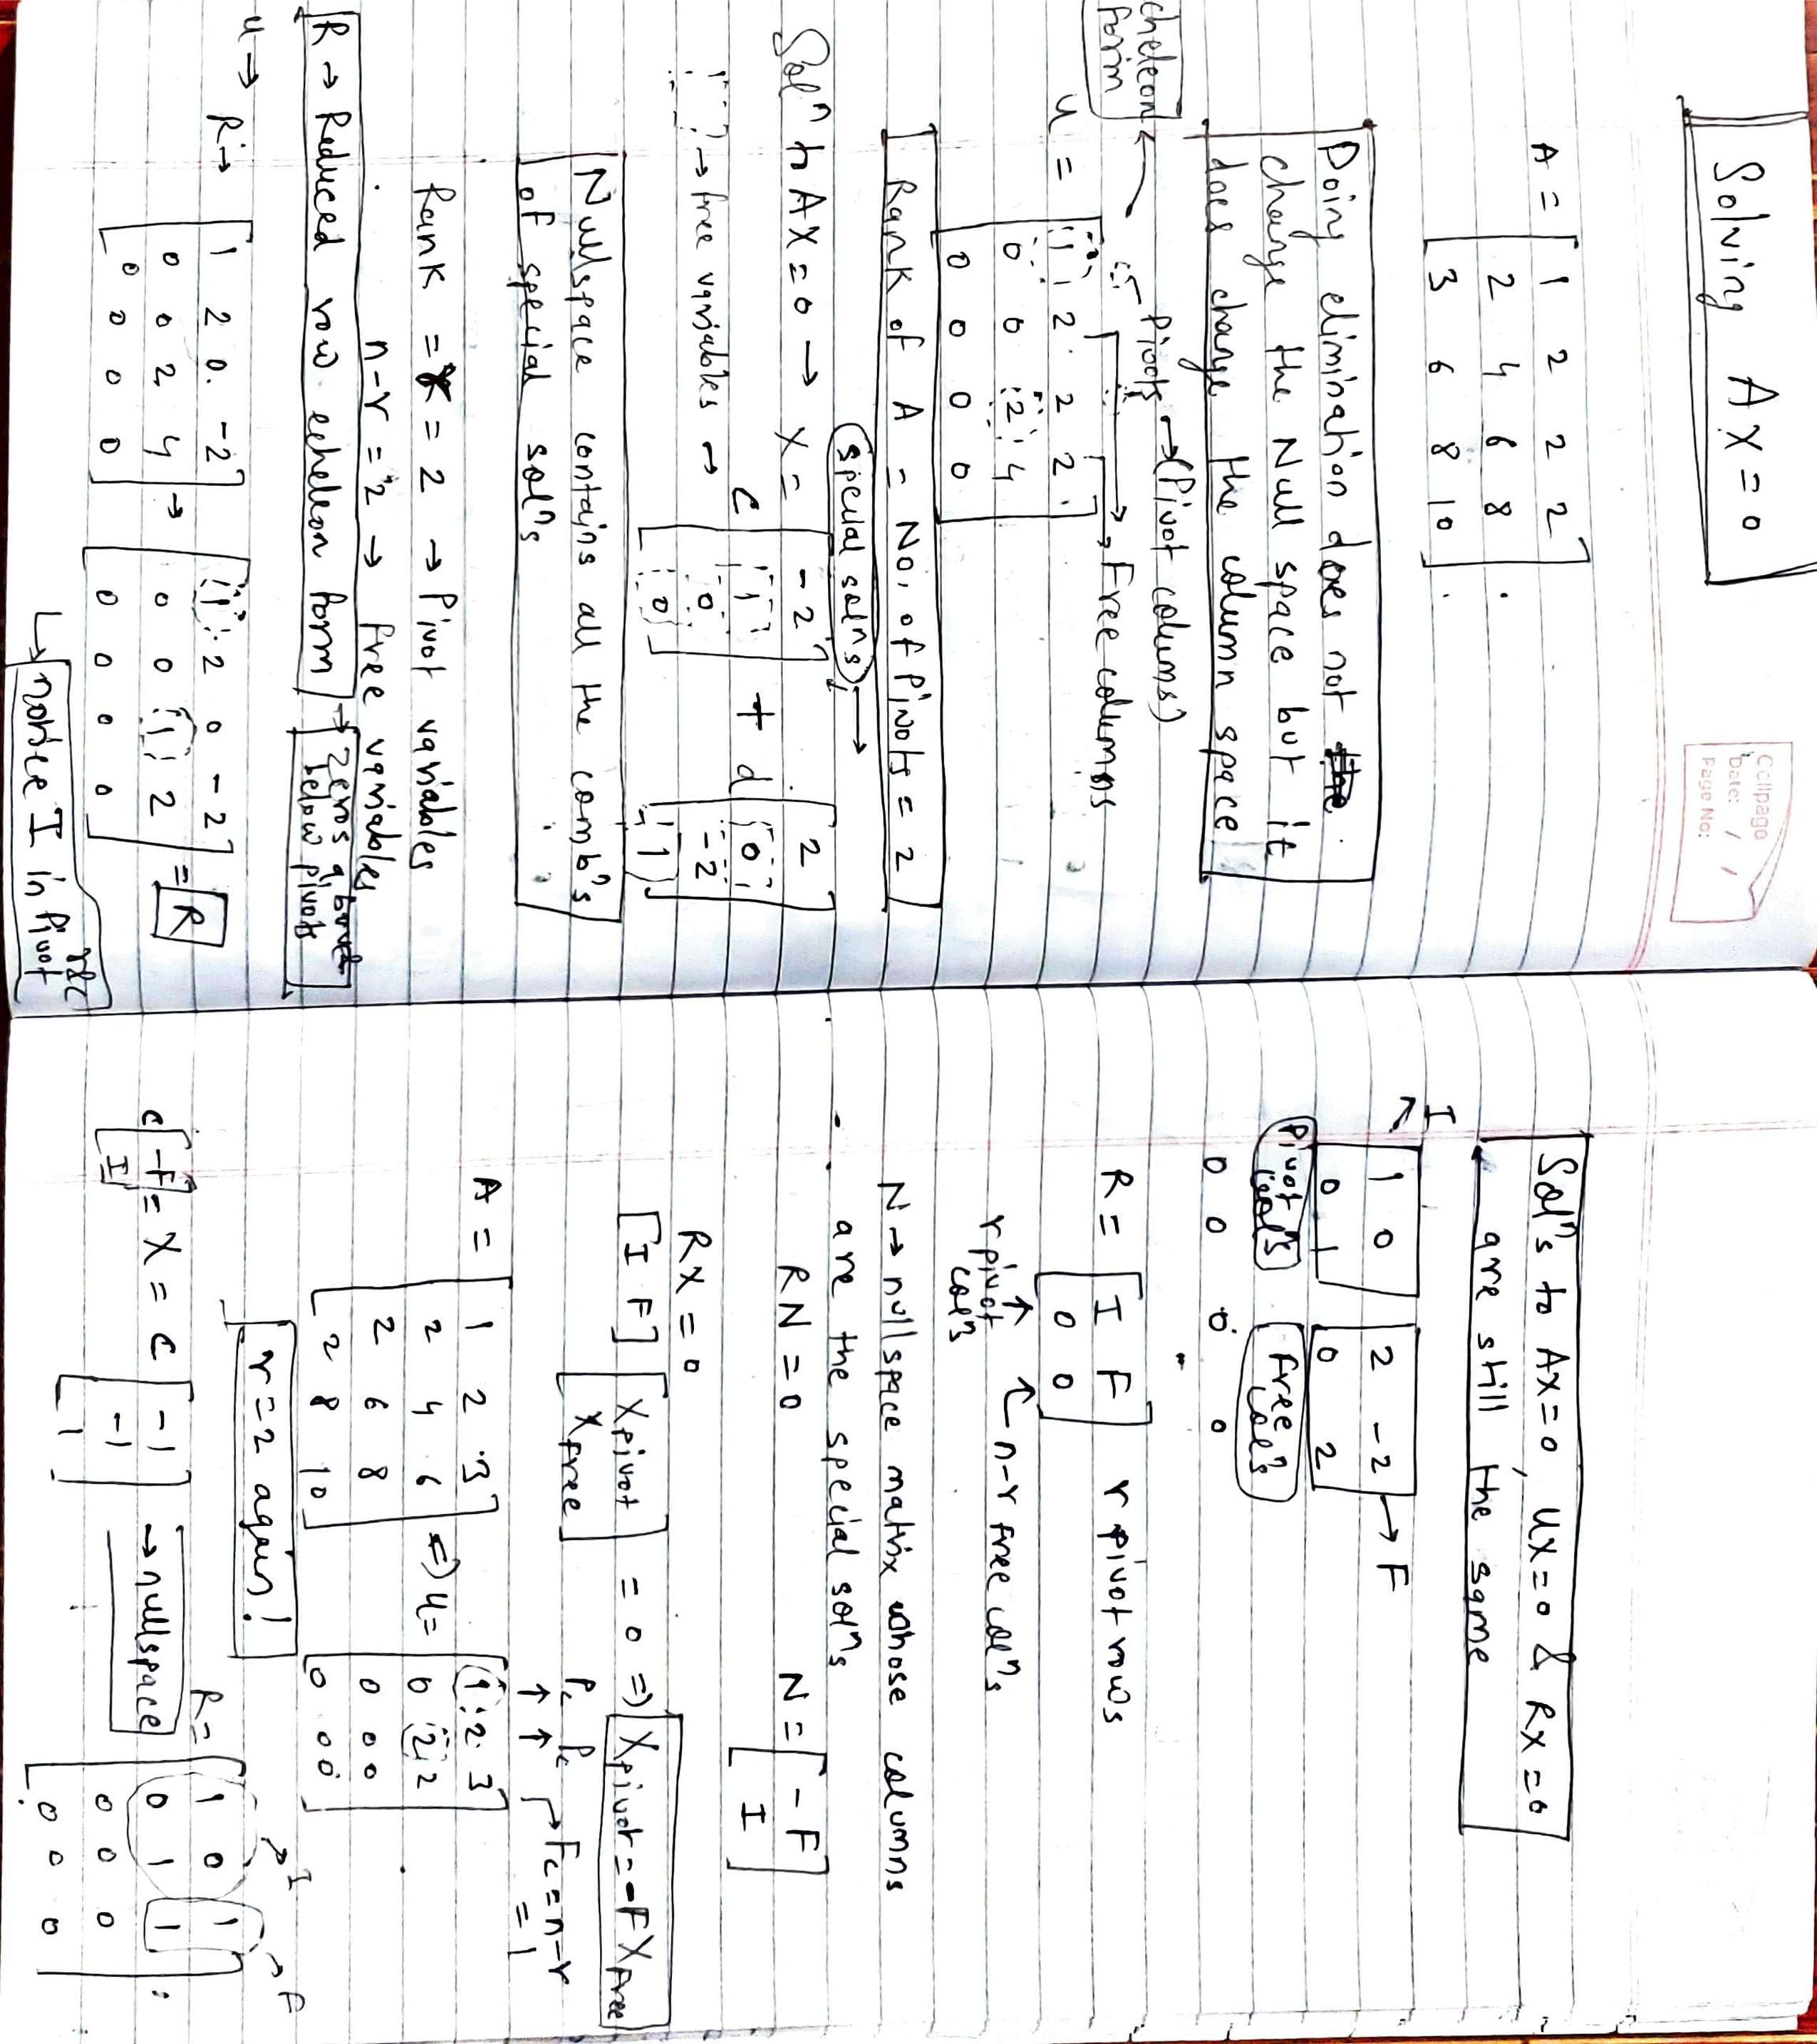 Solving AX=0
Collpage
Date: / /
Page No:
A = [ 1 2 2 2
2 4 6 8
3 6 8 10 ]
Doing elimination does not
change the Null space but it
does change the column space
cheleon form
Pivots → (Pivot colums)
→ Free columns
U = [ 1 2 2 2
0 0 2 4
0 0 0 0 ]
Rank of A = No. of Pivots = 2
special solⁿs →
Solⁿ to AX=0 → X = c [ -2 1 0 0 ] + d [ 2 0 -2 1 ]
→ free variables →
Nullspace contains all the combⁿs
of special solⁿs
Rank = r = 2 → Pivot variables
n-r = 2 → free variables
R → Reduced row echeleon form → zeros above below pivots
U →
R → [ 1 2 0 -2
0 0 2 4
0 0 0 0 ] → [ 1 2 0 -2
0 0 1 2
0 0 0 0 ] = R
↳ notice I in Pivot r&c
Solⁿs to AX=0, UX=0 & RX=0
are still the same
I
1 0 2 -2 → F
0 1 0 2
Pivot colⁿs free colⁿs
0 0 0 0
R = [ I F
0 0 ] r pivot rows
r pivot colⁿs
n-r free colⁿs
N → nullspace matrix whose columns
are the special solⁿs
RN = 0 N = [ -F
I ]
RX = 0
[I F] [ Xpivot
Xfree ] = 0 => Xpivot = -F Xfree
Pc Pc Fc = n-r
= 1
A = [ 1 2 3
2 4 6
2 6 8
2 8 10 ] => U = [ 1 2 3
0 2 2
0 0 0
0 0 0 ]
r=2 again!
I F
R = [ 1 0 1
0 1 1
0 0 0
0 0 0 ]
c [ -F
I ] = X = c [ -1
-1
1 ] → nullspace